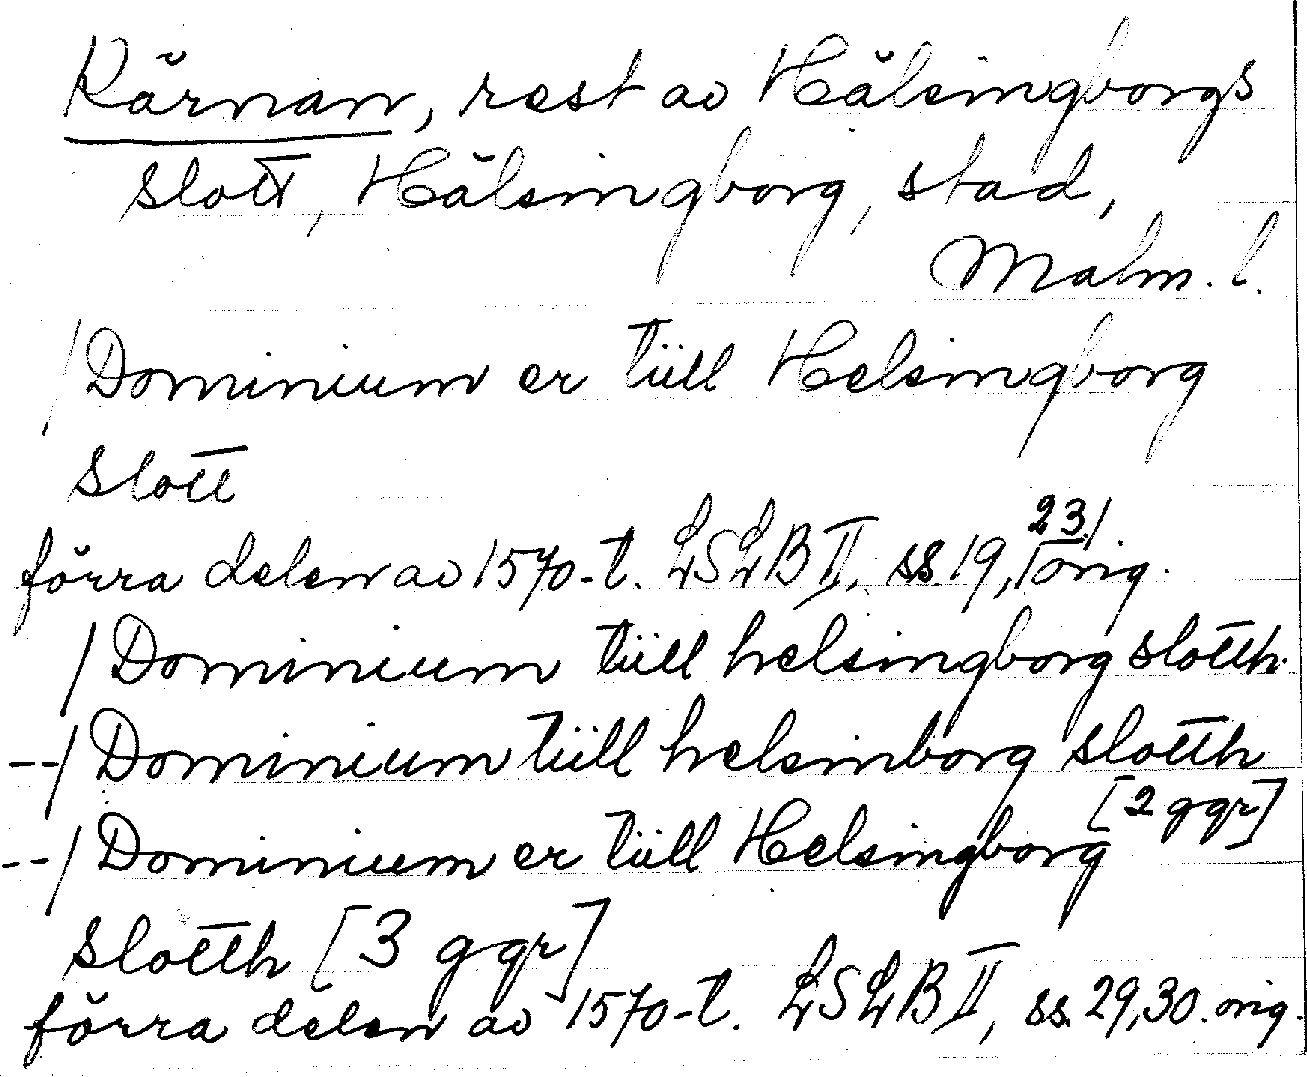 Kärnan, rest av Hälsingborgs
slott, Hälsingborg, stad,
Malm. l.
/Dominium er tüll Helsingborg
Slott
förra delen av 1570-t. LSLB II, ss 19, 23/ orig.
/Dominium tüll helsingborg slotth.
--/Dominium tüll helsinborg slotth
[2 ggr]
--/Dominium er tüll Helsingborg
slotth [3 ggr]
förra delen av 1570-t. LSLB II, ss. 29,30. orig.